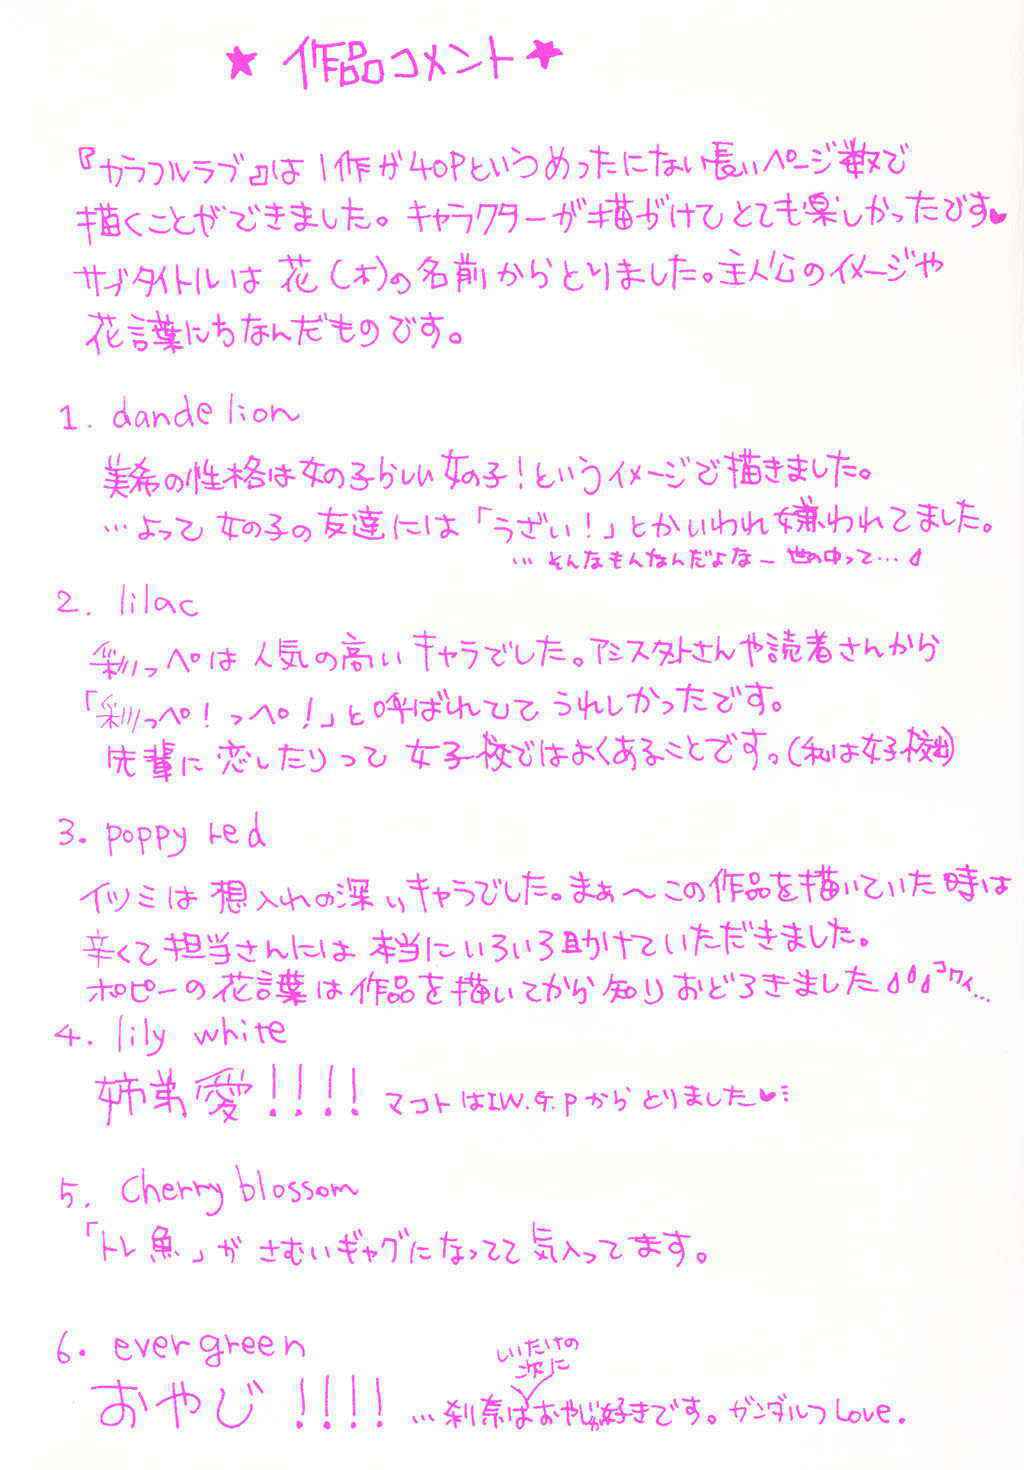 ★ 作品コメント ★
『カラフルラブ』は1作が40Pというめったにない長いページ数で
描くことができました。キャラクターが描かけてとても楽しかったです♥
サブタイトルは花(木)の名前からとりました。主人公のイメージや
花言葉にちなんだものです。
1. dandelion
美希の性格は女の子らしい女の子!というイメージで描きました。
…よって女の子の友達には「うざい!」とかいわれ嫌われてました。
… そんなもんなんだよなー 世の中って…
2. lilac
彩っぺは人気の高いキャラでした。アシスタントさんや読者さんから
「彩っぺ!っぺ!」と呼ばれてて うれしかったです。
先輩に恋したりって 女子校ではよくあることです。(私は女子校出)
3. poppy red
イツミは想入れの深いキャラでした。まぁ〜この作品を描いていた時は
辛くて担当さんには本当にいろいろ助けていただきました。
ポピーの花言葉は作品を描いてから知りおどろきました コワィ…
4. lily white
姉弟愛!!!! マコトはI.W.G.Pからとりました♥…
5. Cherry blossom
「トレ魚」がさむいギャグになってて気入ってます。
6. ever green
しいたけの
次に
おやじ!!!! …刹奈はおやじが好きです。ガンダルフLove.